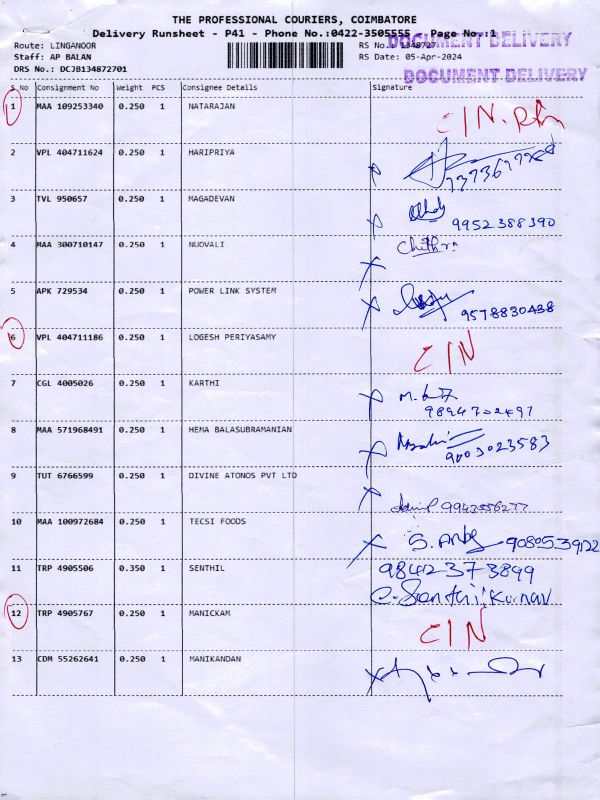 THE PROFESSIONAL COURIERS, COIMBATORE
Delivery Runsheet - P41 - Phone No.:0422-3505555 Page No.:1
DOCUMENT DELIVERY
Route: LINGANOOR RS No.: 1348727
Staff: AP BALAN RS Date: 05-Apr-2024
DRS No.: DCJB134872701
DOCUMENT DELIVERY
S No Consignment No Weight PCS Consignee Details Signature
1 MAA 109253340 0.250 1 NATARAJAN
CIN.
2 VPL 404711624 0.250 1 HARIPRIYA
3 TVL 950657 0.250 1 MAGADEVAN
9952388390
4 MAA 300710147 0.250 1 NUOVALI
Chithra
5 APK 729534 0.250 1 POWER LINK SYSTEM
9578830438
6 VPL 404711186 0.250 1 LOGESH PERIYASAMY
CIN
7 CGL 4005026 0.250 1 KARTHI
9894702497
8 MAA 571968491 0.250 1 HEMA BALASUBRAMANIAN
9003023583
9 TUT 6766599 0.250 1 DIVINE ATONOS PVT LTD
9943556277
10 MAA 100972684 0.250 1 TECSI FOODS
9080539122
11 TRP 4905506 0.350 1 SENTHIL
9842373899
C. Senthil Kumar
12 TRP 4905767 0.250 1 MANICKAM
CIN
13 CDM 55262641 0.250 1 MANIKANDAN